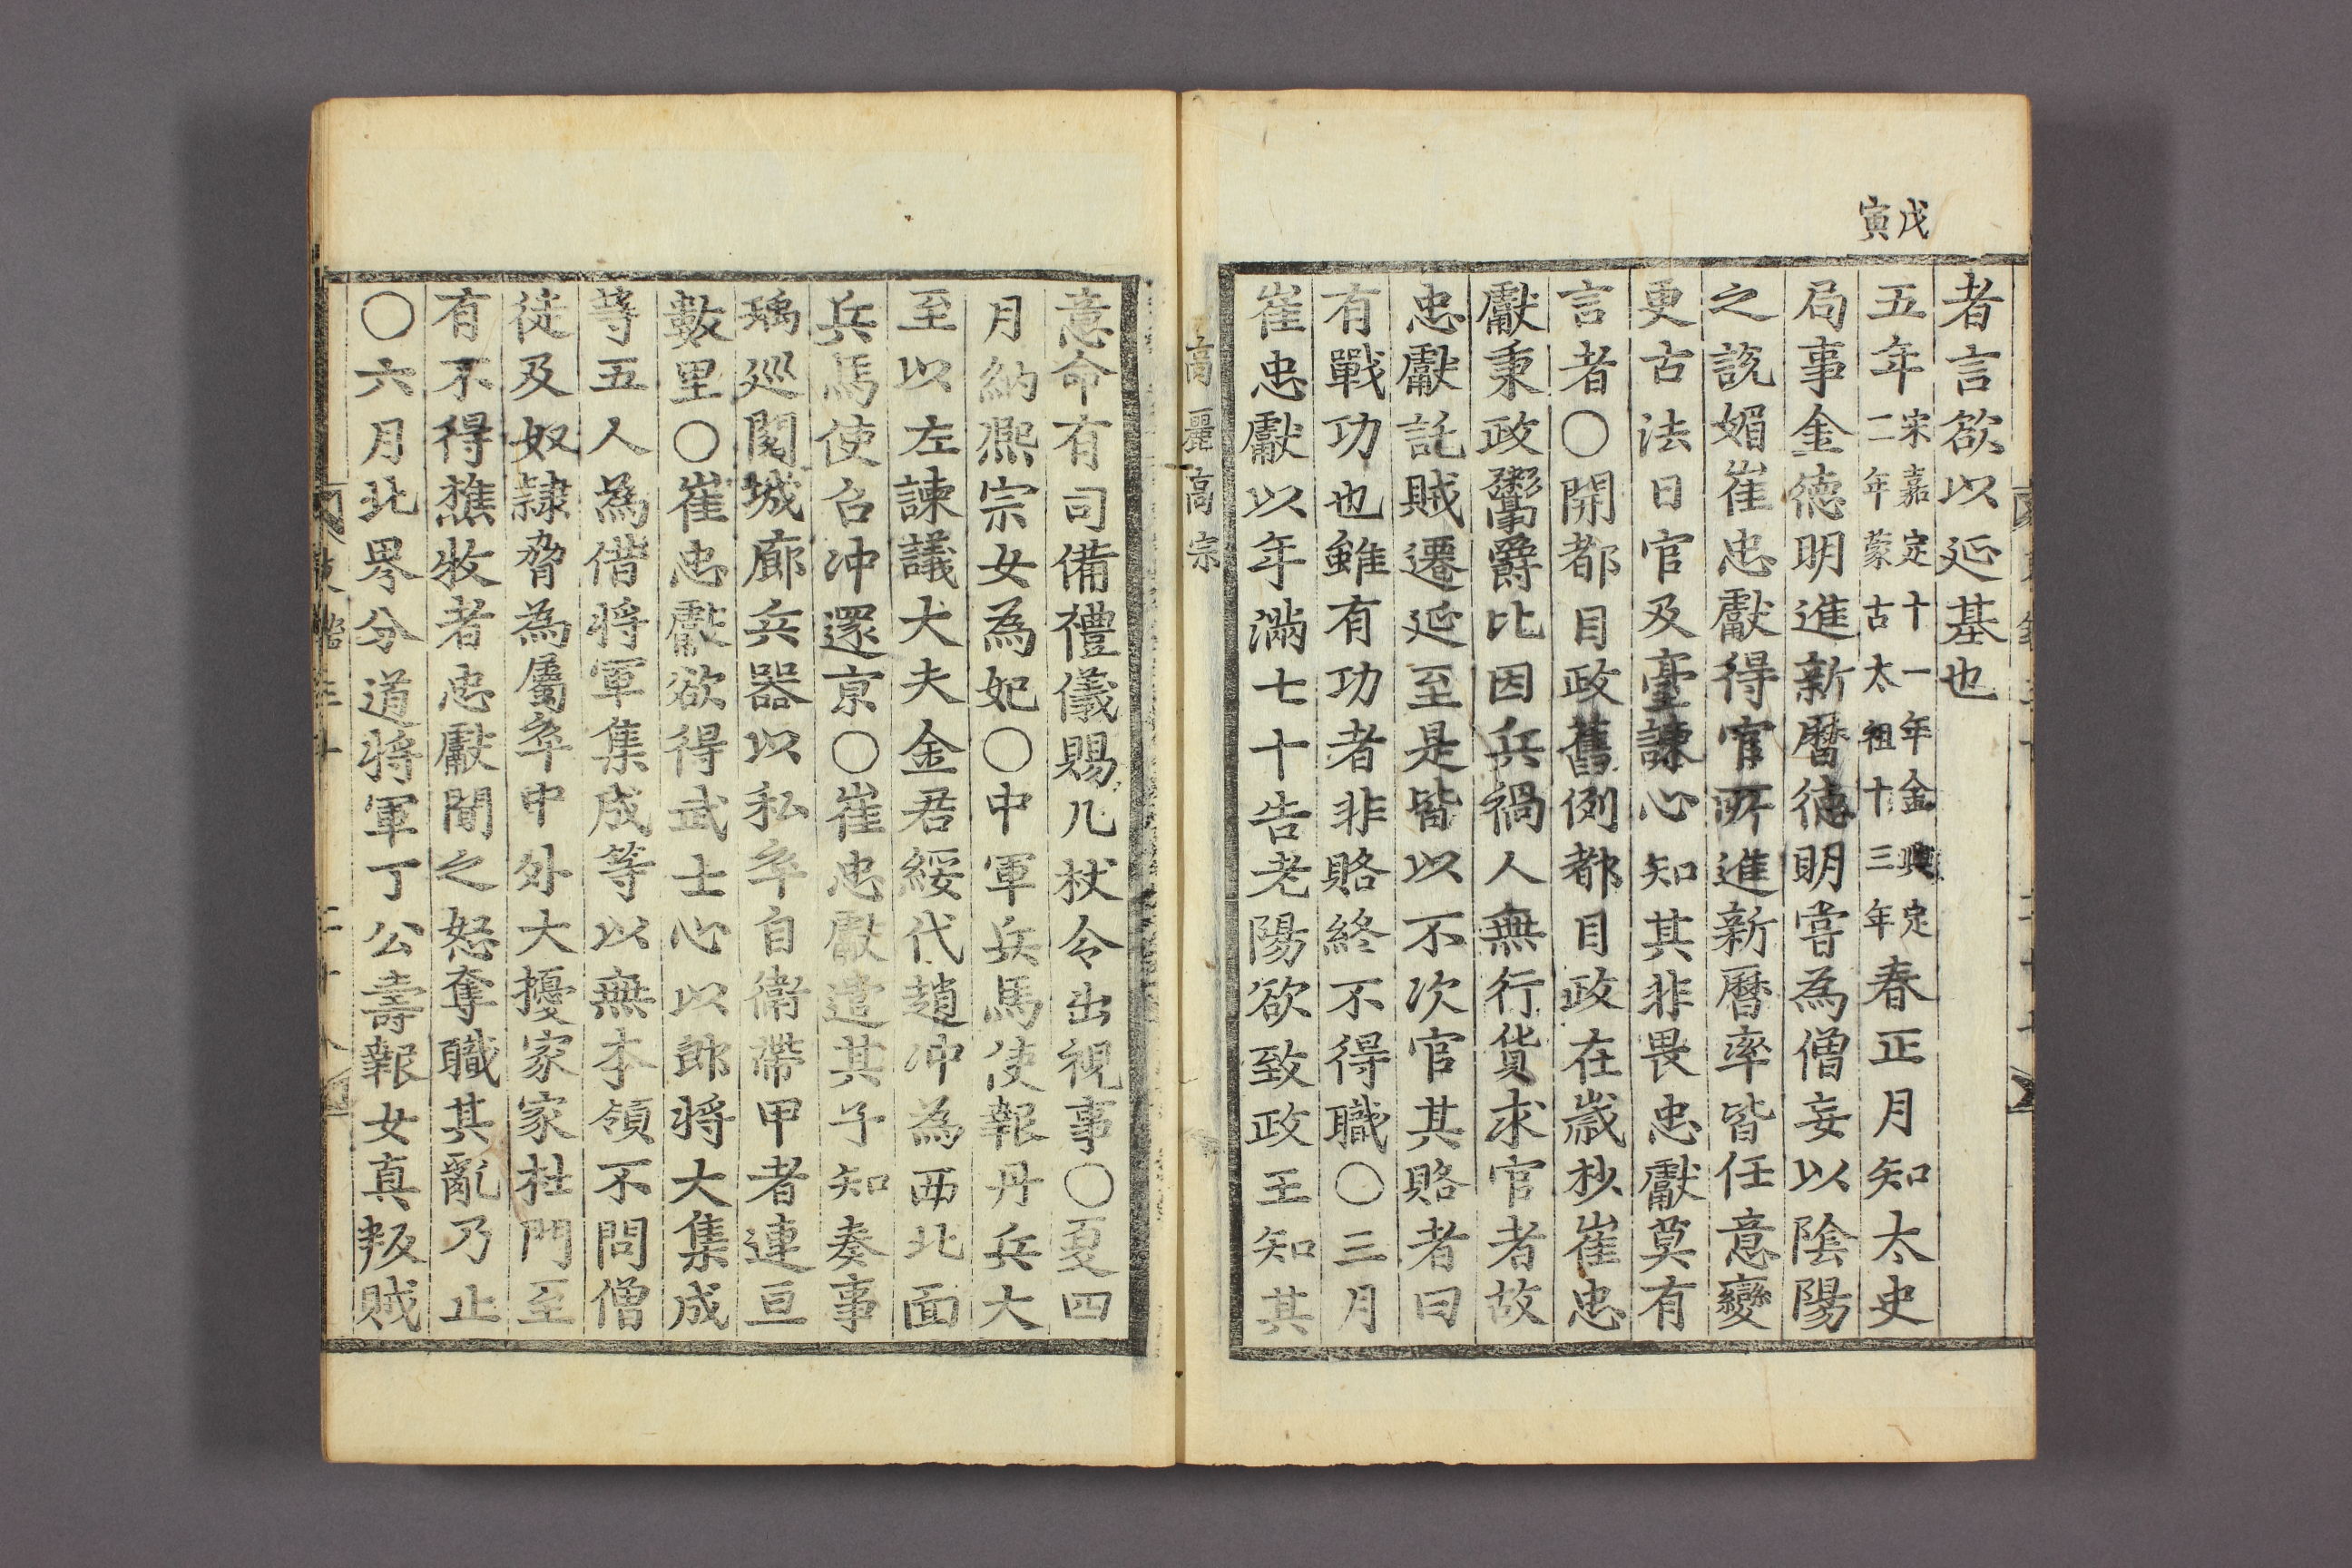 戊寅
者言欲以延基也
五年宋嘉定十一年金興定二年蒙古太祖十三年春正月知太史
局事金德明進新曆德明嘗為僧妄以陰陽
之說媚崔忠獻得官所進新曆率皆任意變
更古法日官及臺諫心知其非畏忠獻莫有
言者○開都目政舊例都目政在歲杪崔忠
獻秉政鬻爵比因兵禍人無行貨求官者故
忠獻託賊遷延至是皆以不次官其賂者曰
有戰功也雖有功者非賂終不得職○三月
崔忠獻以年滿七十告老陽欲致政王知其
高麗高宗
意命有司備禮儀賜几杖令出視事○夏四
月納熙宗女為妃○中軍兵馬使報丹兵大
至以左諫議大夫金君綏代趙冲為西北面
兵馬使召冲還京○崔忠獻遣其子知奏事
瑀巡閱城廊兵器以私卒自衛帶甲者連亘
數里○崔忠獻欲得武士心以郎將大集成
等五人為借將軍集成等以無本領不問僧
徒及奴隷脅為屬卒中外大擾家家杜門至
有不得樵牧者忠獻聞之怒奪職其亂乃止
○六月北界分道將軍丁公壽報女真叛賊